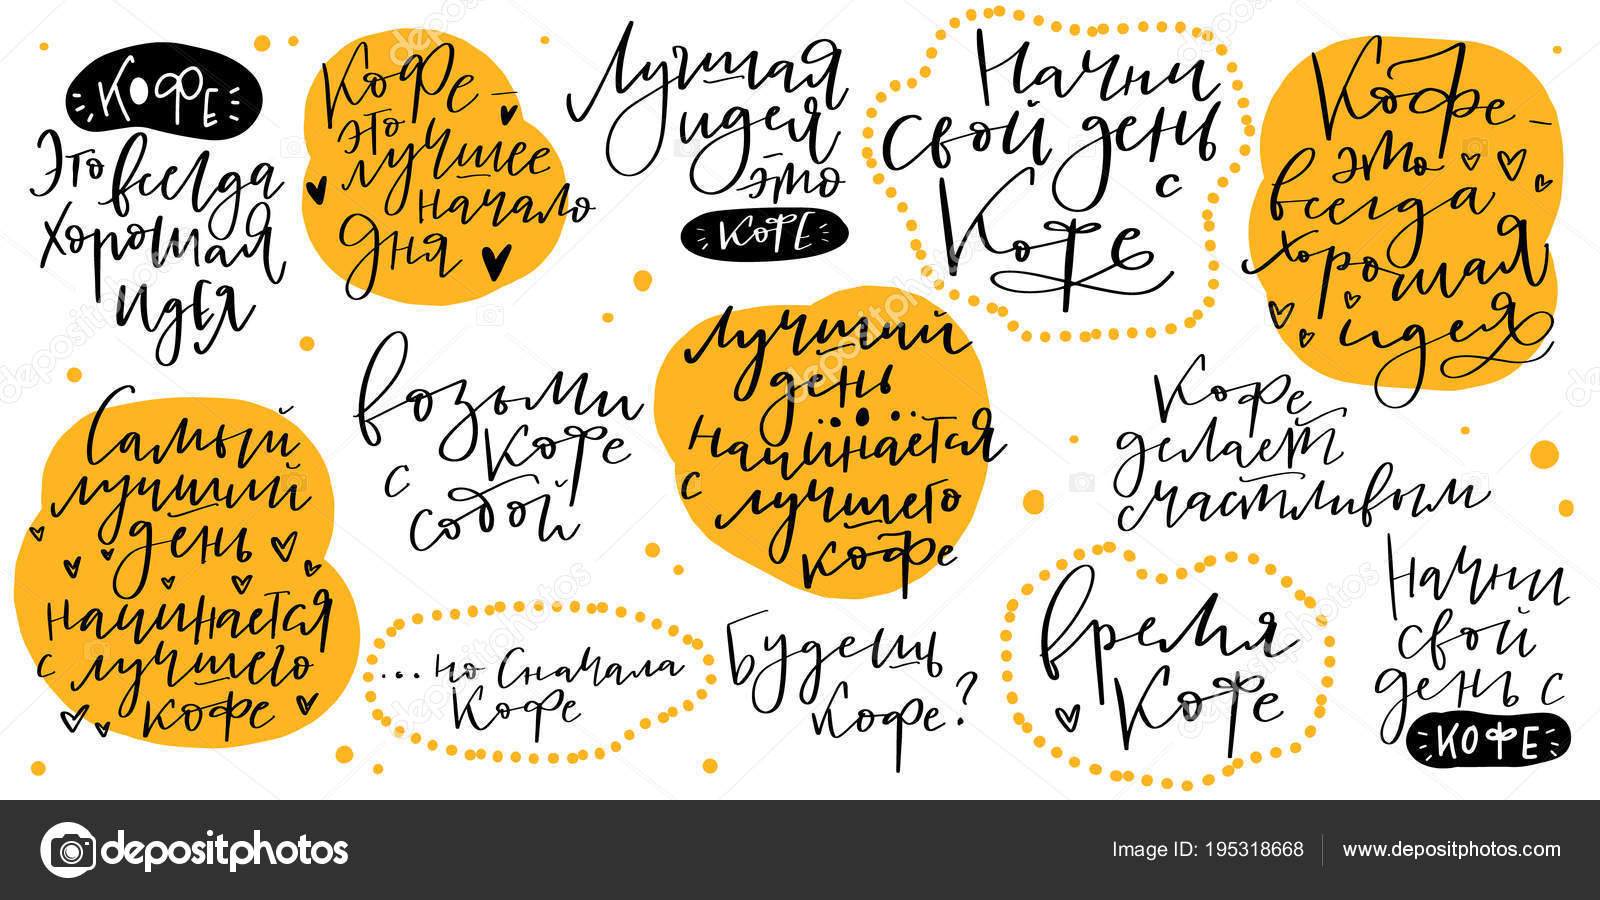 КОФЕ
Это всегда
хорошая
идея
Кофе –
это
лучшее
начало
дня
Лучшая
идея
это
КОФЕ
Начни
свой день
с
Кофе
Кофе –
это
всегда
хорошая
идея
Самый
лучший
день
начинается
с лучшего
кофе
возьми
с кофе
собой
Лучший
день
начинается
с лучшего
кофе
Кофе
делает
счастливым
...но сначала
Кофе
Будешь
кофе?
время
Кофе
Начни
свой
день с
КОФЕ
depositphotos
Image ID: 195318668
www.depositphotos.com